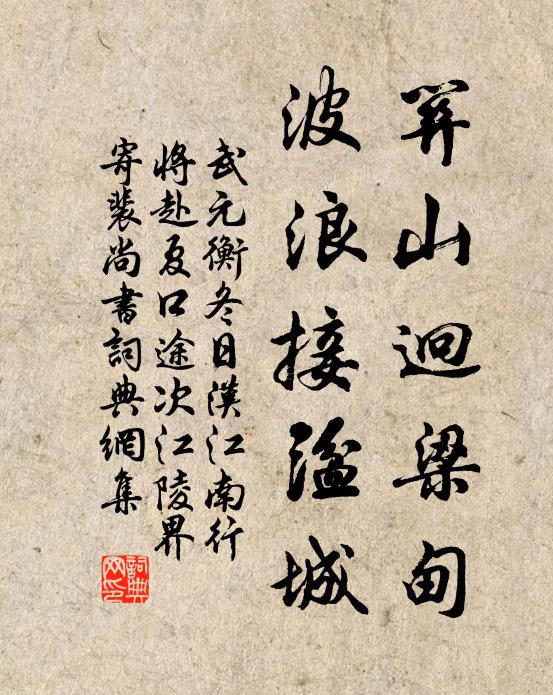 关山迥梁甸
波浪接湓城
武元衡冬日漢江南行
將赴夏口途次江陵界
寄裴尚書詞典網集
詞典
网印